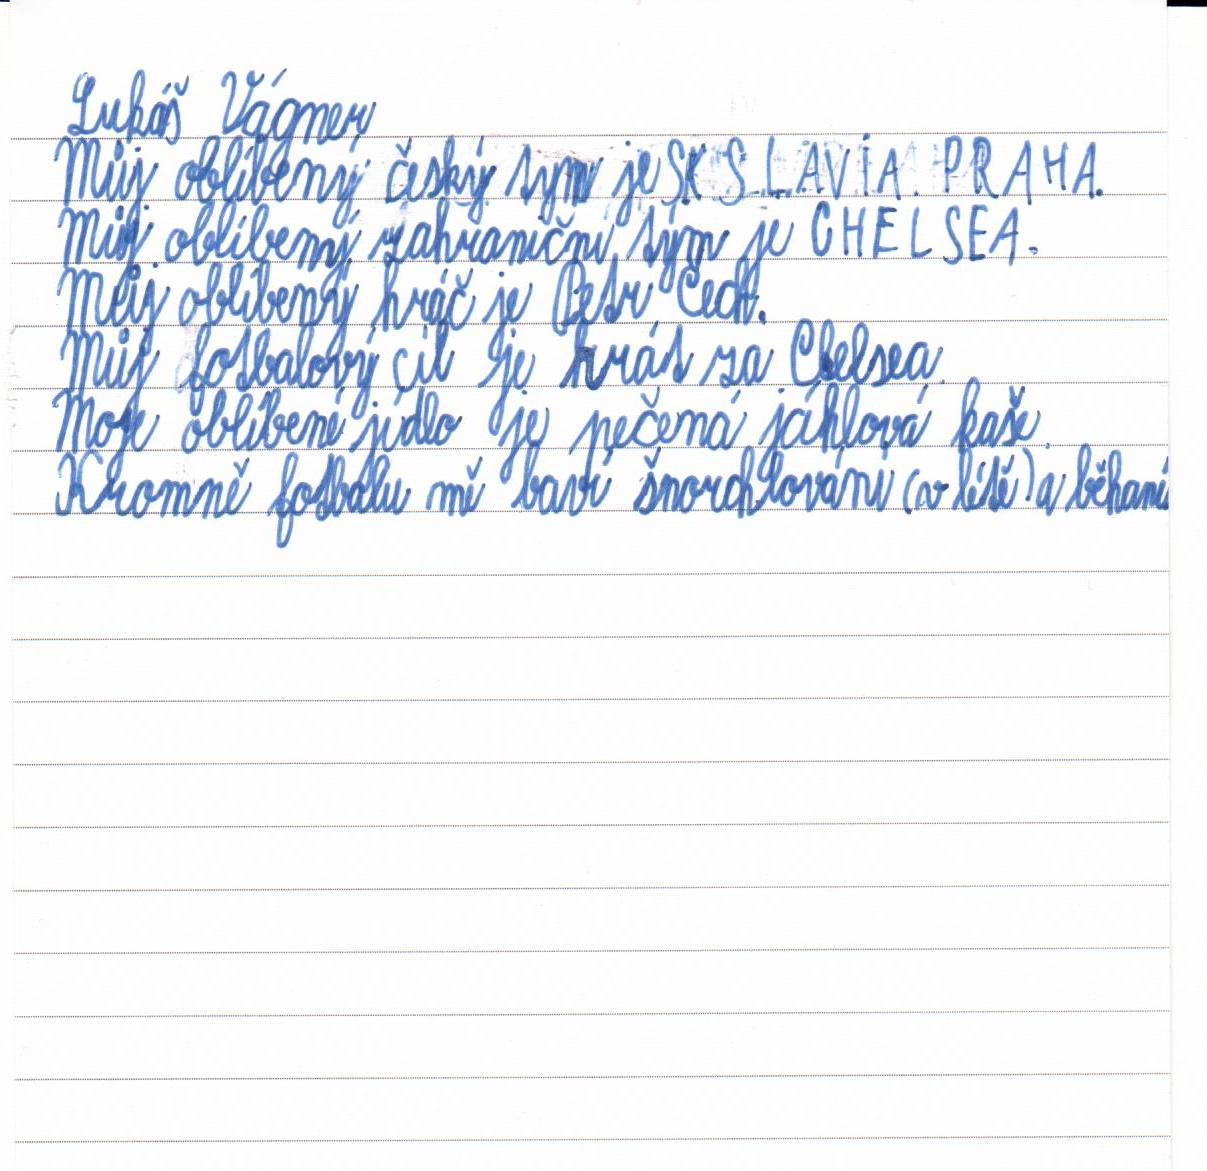 Lukáš Vágner
Můj oblíbený český tým je SK SLAVIA PRAHA.
Můj oblíbený zahraniční tým je CHELSEA.
Můj oblíbený hráč je Petr Čech.
Můj fotbalový cíl je hrát za Chelsea.
Moje oblíbené jídlo je pečená jáhlová kaše.
Kromně fotbalu mě baví šnorchlování (v létě) a běhání